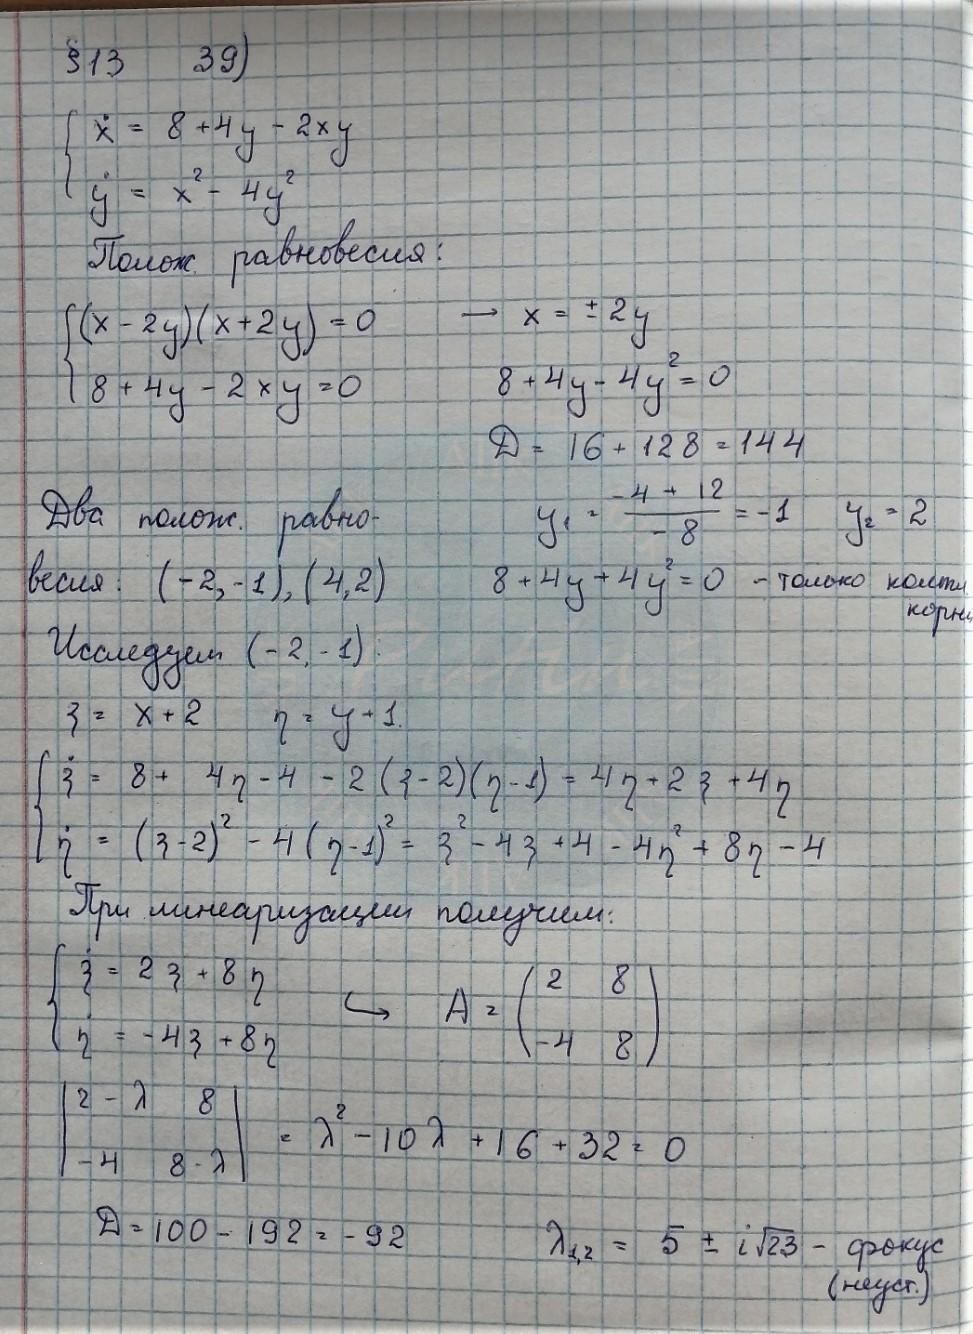 §13 39)
ẋ = 8 + 4y - 2xy
ẏ = x² - 4y²
Полож. равновесия:
(x - 2y)(x + 2y) = 0 → x = ± 2y
8 + 4y - 2xy = 0 8 + 4y - 4y² = 0
D = 16 + 128 = 144
Два полож. равно- y₁ = (-4 + 12)/(-8) = -1 y₂ = 2
весия: (-2, -1), (4, 2) 8 + 4y + 4y² = 0 - только компл.
корни
Исследуем (-2, -1):
ξ = x + 2 η = y + 1.
ξ̇ = 8 + 4η - 4 - 2(ξ - 2)(η - 1) = 4η + 2ξ + 4η
η̇ = (ξ - 2)² - 4(η - 1)² = ξ² - 4ξ + 4 - 4η² + 8η - 4
При линеаризации получим:
ξ̇ = 2ξ + 8η
η̇ = -4ξ + 8η ↪ A = (2 8
-4 8)
|2 - λ 8
-4 8 - λ| = λ² - 10λ + 16 + 32 = 0
D = 100 - 192 = -92 λ₁,₂ = 5 ± i√23 - фокус
(неуст.)